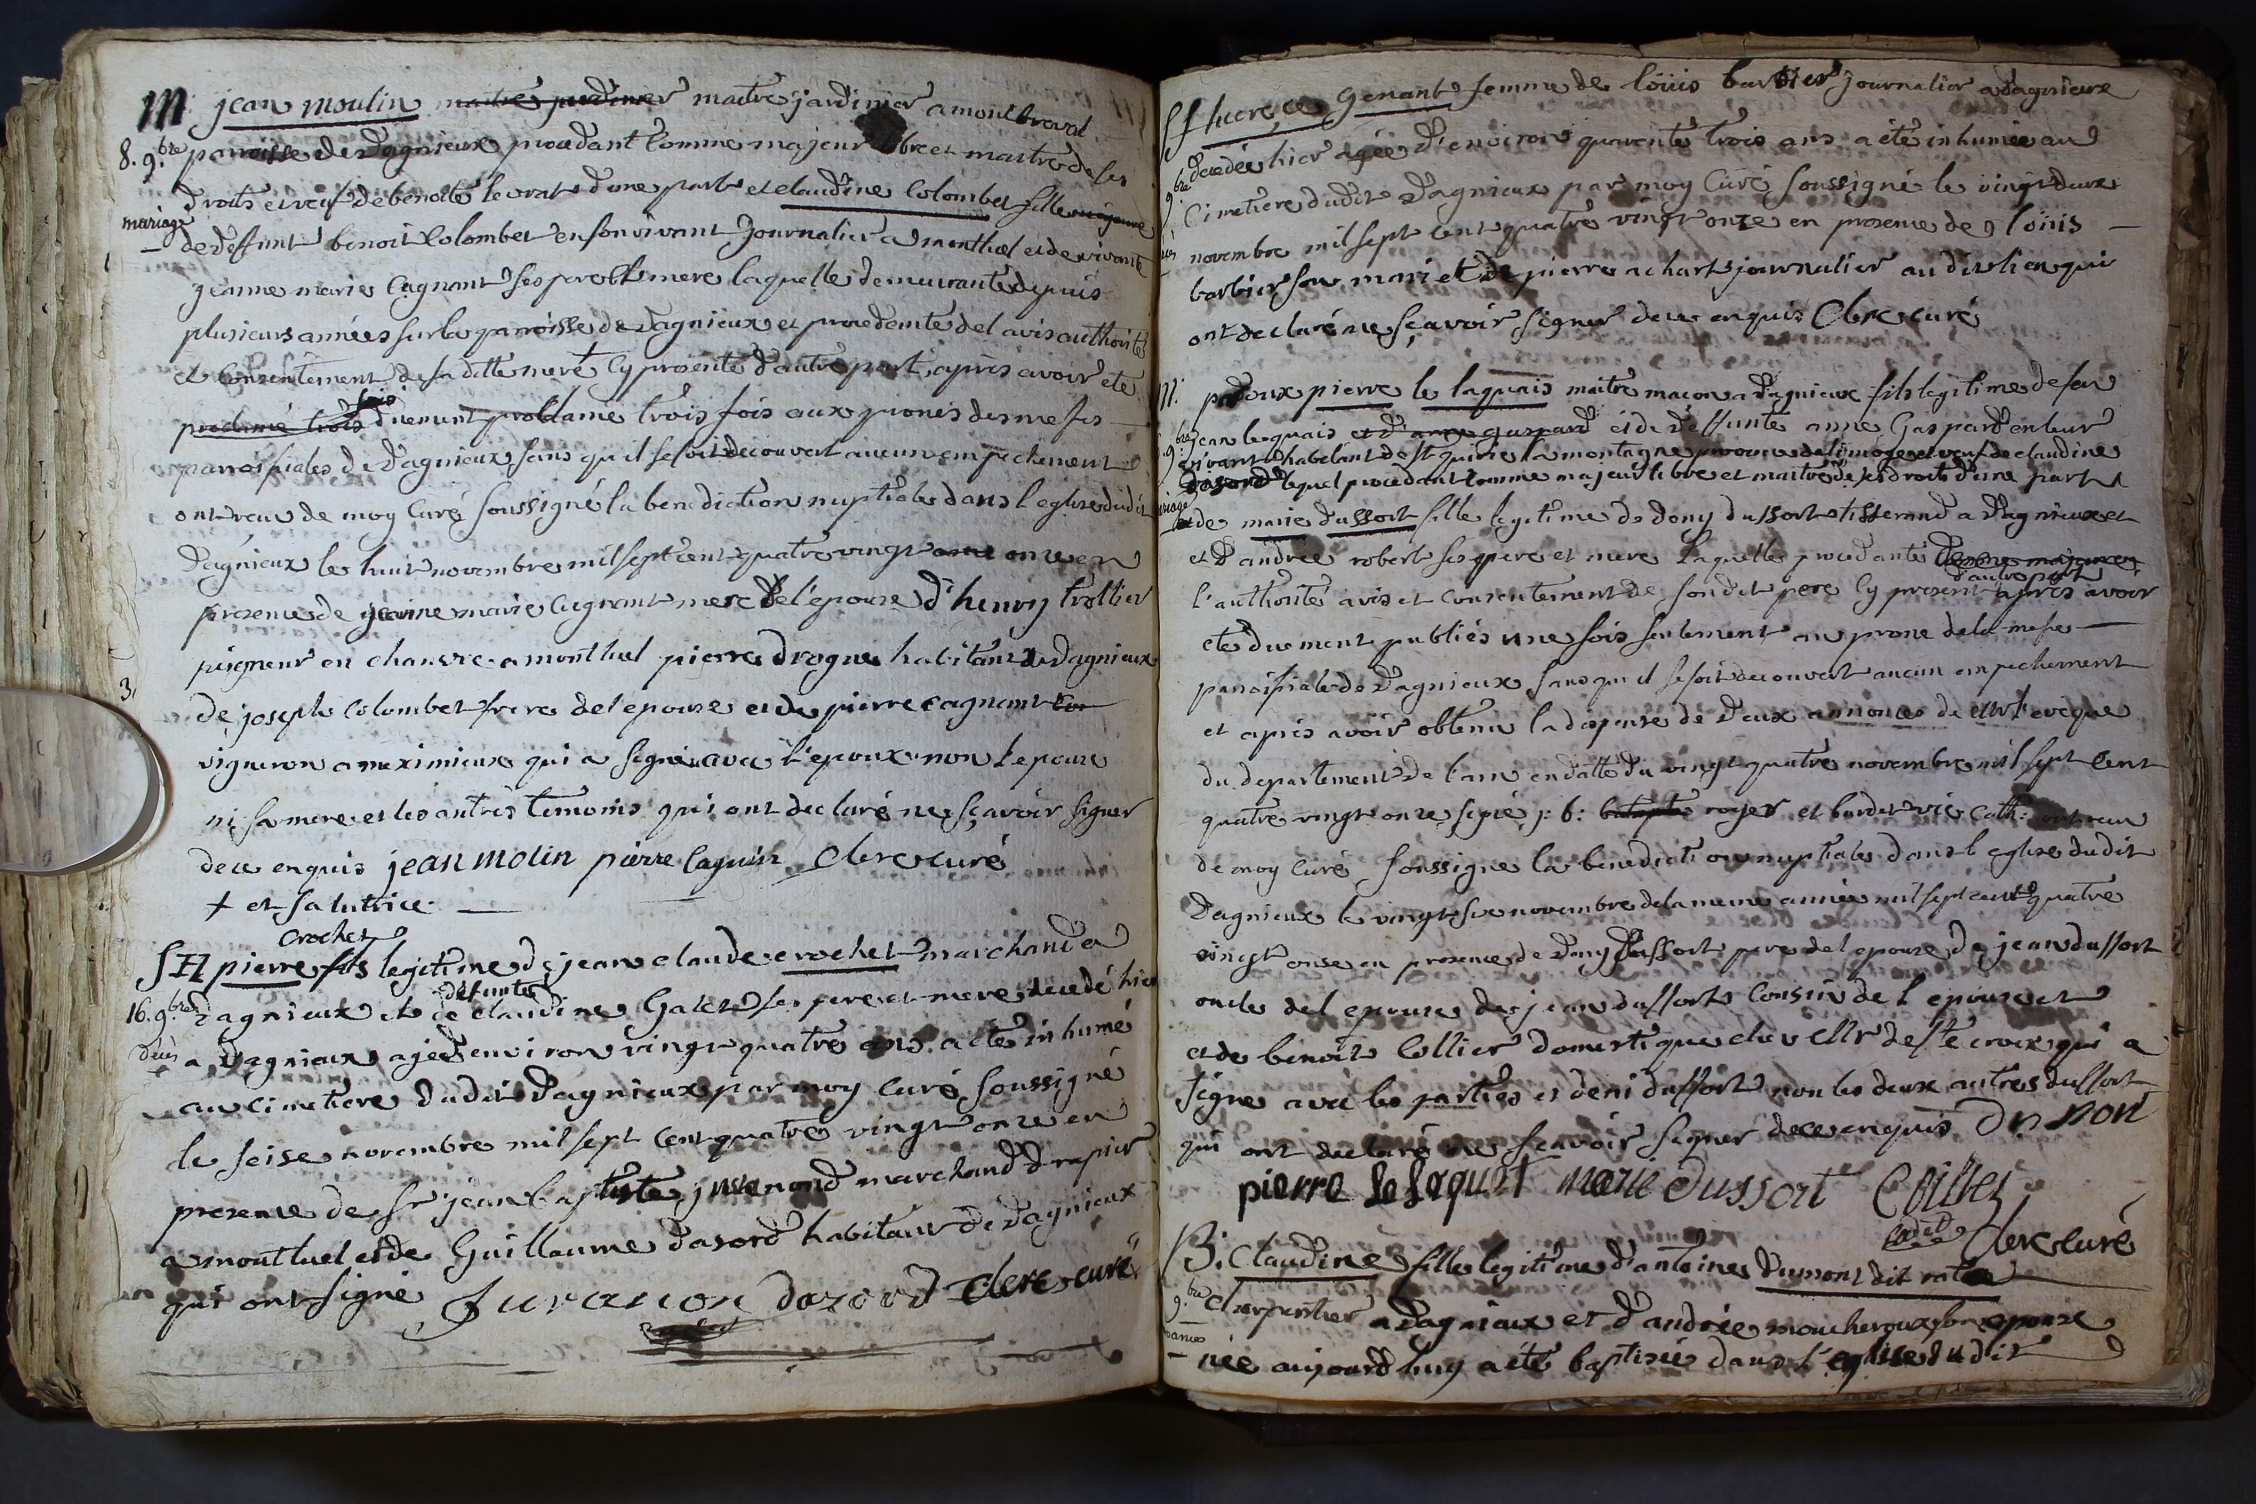 M jean moulin maitre jardinier maitre jardinier a montbreval
8. 9.bre paroisse de Dagnieux procedant comme majeur libre et maitre de ses
droits et veuf de benoite levrat d'une part et claudine Colombet fille mineure
mariage
de deffunt benoit Colombet en son vivant Journalier a montluel et de vivante
jeanne marie Cagnant ses pere et mere laquelle demeurante depuis
plusieurs années sur la paroisse de Dagnieux et procedente de l avis authorité
et Consentement de sa ditte mere Cy presente d'autre part, après avoir eté
proclamé trois fois duement proclamé trois fois aux prones des messes
parroissiales de Dagnieux sans qu'il se soit decouvert aucun empechement
ont reçu de moy Curé soussigné la benediction nuptiale dans l eglise dudit
Dagnieux le huit novembre mil sept cent quatre vingt onze en
presence de jeanne marie Cagnant mere de l'epouse d'henry trollier
peigneur en chanvre a montluel pierre drogue habitant de Dagnieux
de joseph Colombet frere de l epouse et de pierre cagnant
vigneron a meximieux qui a signé avec l'epoux non l epouse
ni sa mere et les autres temoins qui ont declaré ne sçavoir signer
de ce enquis jean molin pierre Cagnin Clerc curé
+ et sa tutrice
crochet
S pierre fils legitime de jean claude crochet marchand a
16. 9.bre Dagnieux et de defunte claudine Galet ses pere et mere decedé hier
décès
a Dagnieux agé d'environ vingt quatre ans a eté inhumé
au cimetiere dudit Dagnieux par moy Curé soussigné
le seise novembre mil sept Cent quatre vingt onze en
presence de Sr jean baptiste juvanond marchand drapier
a montluel et de Guillaume dasord habitant de Dagnieux
qui ont signé Juvanon dazord Clerc curé
Sf lucrece Genant femme de loüis barbier Journalier a Dagnieux
decedée hier agée d'environ quarente trois ans a eté inhumée au
9.bre Cimetiere dudit Dagnieux par moy Curé soussigné le vingt deux
novembre mil sept cent quatre vingt onze en presence de loüis
barbier son mari et de pierre achart journalier au dit lieu qui
ont declaré ne sçavoir signer de ce enquis Clerc curé
M. pierre le laquais maitre macon a Dagnieux fils legitime de feu
9.bre jean lequais et d'anne gaspard et de deffunte anne Gaspard en leur
vivant habitant de St quirie la montagne de limoge et veuf de claudine
Dasord lequel procedant comme majeur libre et maitre de ses droits d'une part
et de marie dussort fille legitime de deny dussort tisserand a Dagnieux et
et d'andrée robert ses pere et mere laquelle procedante comme majeure
l'authorité avis et consentement de son dit pere Cy present d'autre part après avoir
eté duement publiés une fois seulement au prone de la messe
parroissiale de Dagnieux sans qu il se soit decouvert aucun empechement
et après avoir obtenu la dispense de deux annonces de Mr l'eveque
du departement de l'ain en datte du vingt quatre novembre mil sept Cent
quatre vingt onze signé j: b: royer et bardet vic cath: ont reçu
de moy Curé soussigné la benediction nuptiale dans l eglise dudit
Dagnieux le vingt six novembre de la meme année mil sept cent quatre
vingt onze en presence de deny dussort pere de l epouse de jean dussort
oncle de l epouse de jean dussort Cousin de l epouse et
et de benoit Collier domestique chez Mr de Ste croix qui a
signé avec les parties et deni dussort non les deux autres dussort
qui ont declaré ne sçavoir signer de ce enquis
pierre le laquait marie dussort Coillet
Clerc curé
B. Claudine fille legitime d'antoine dumont dit
9.bre charpentier a Dagnieux et d'andrée moucheroux son epouse
née aujourd huy a eté baptisée dans l'eglise dudit